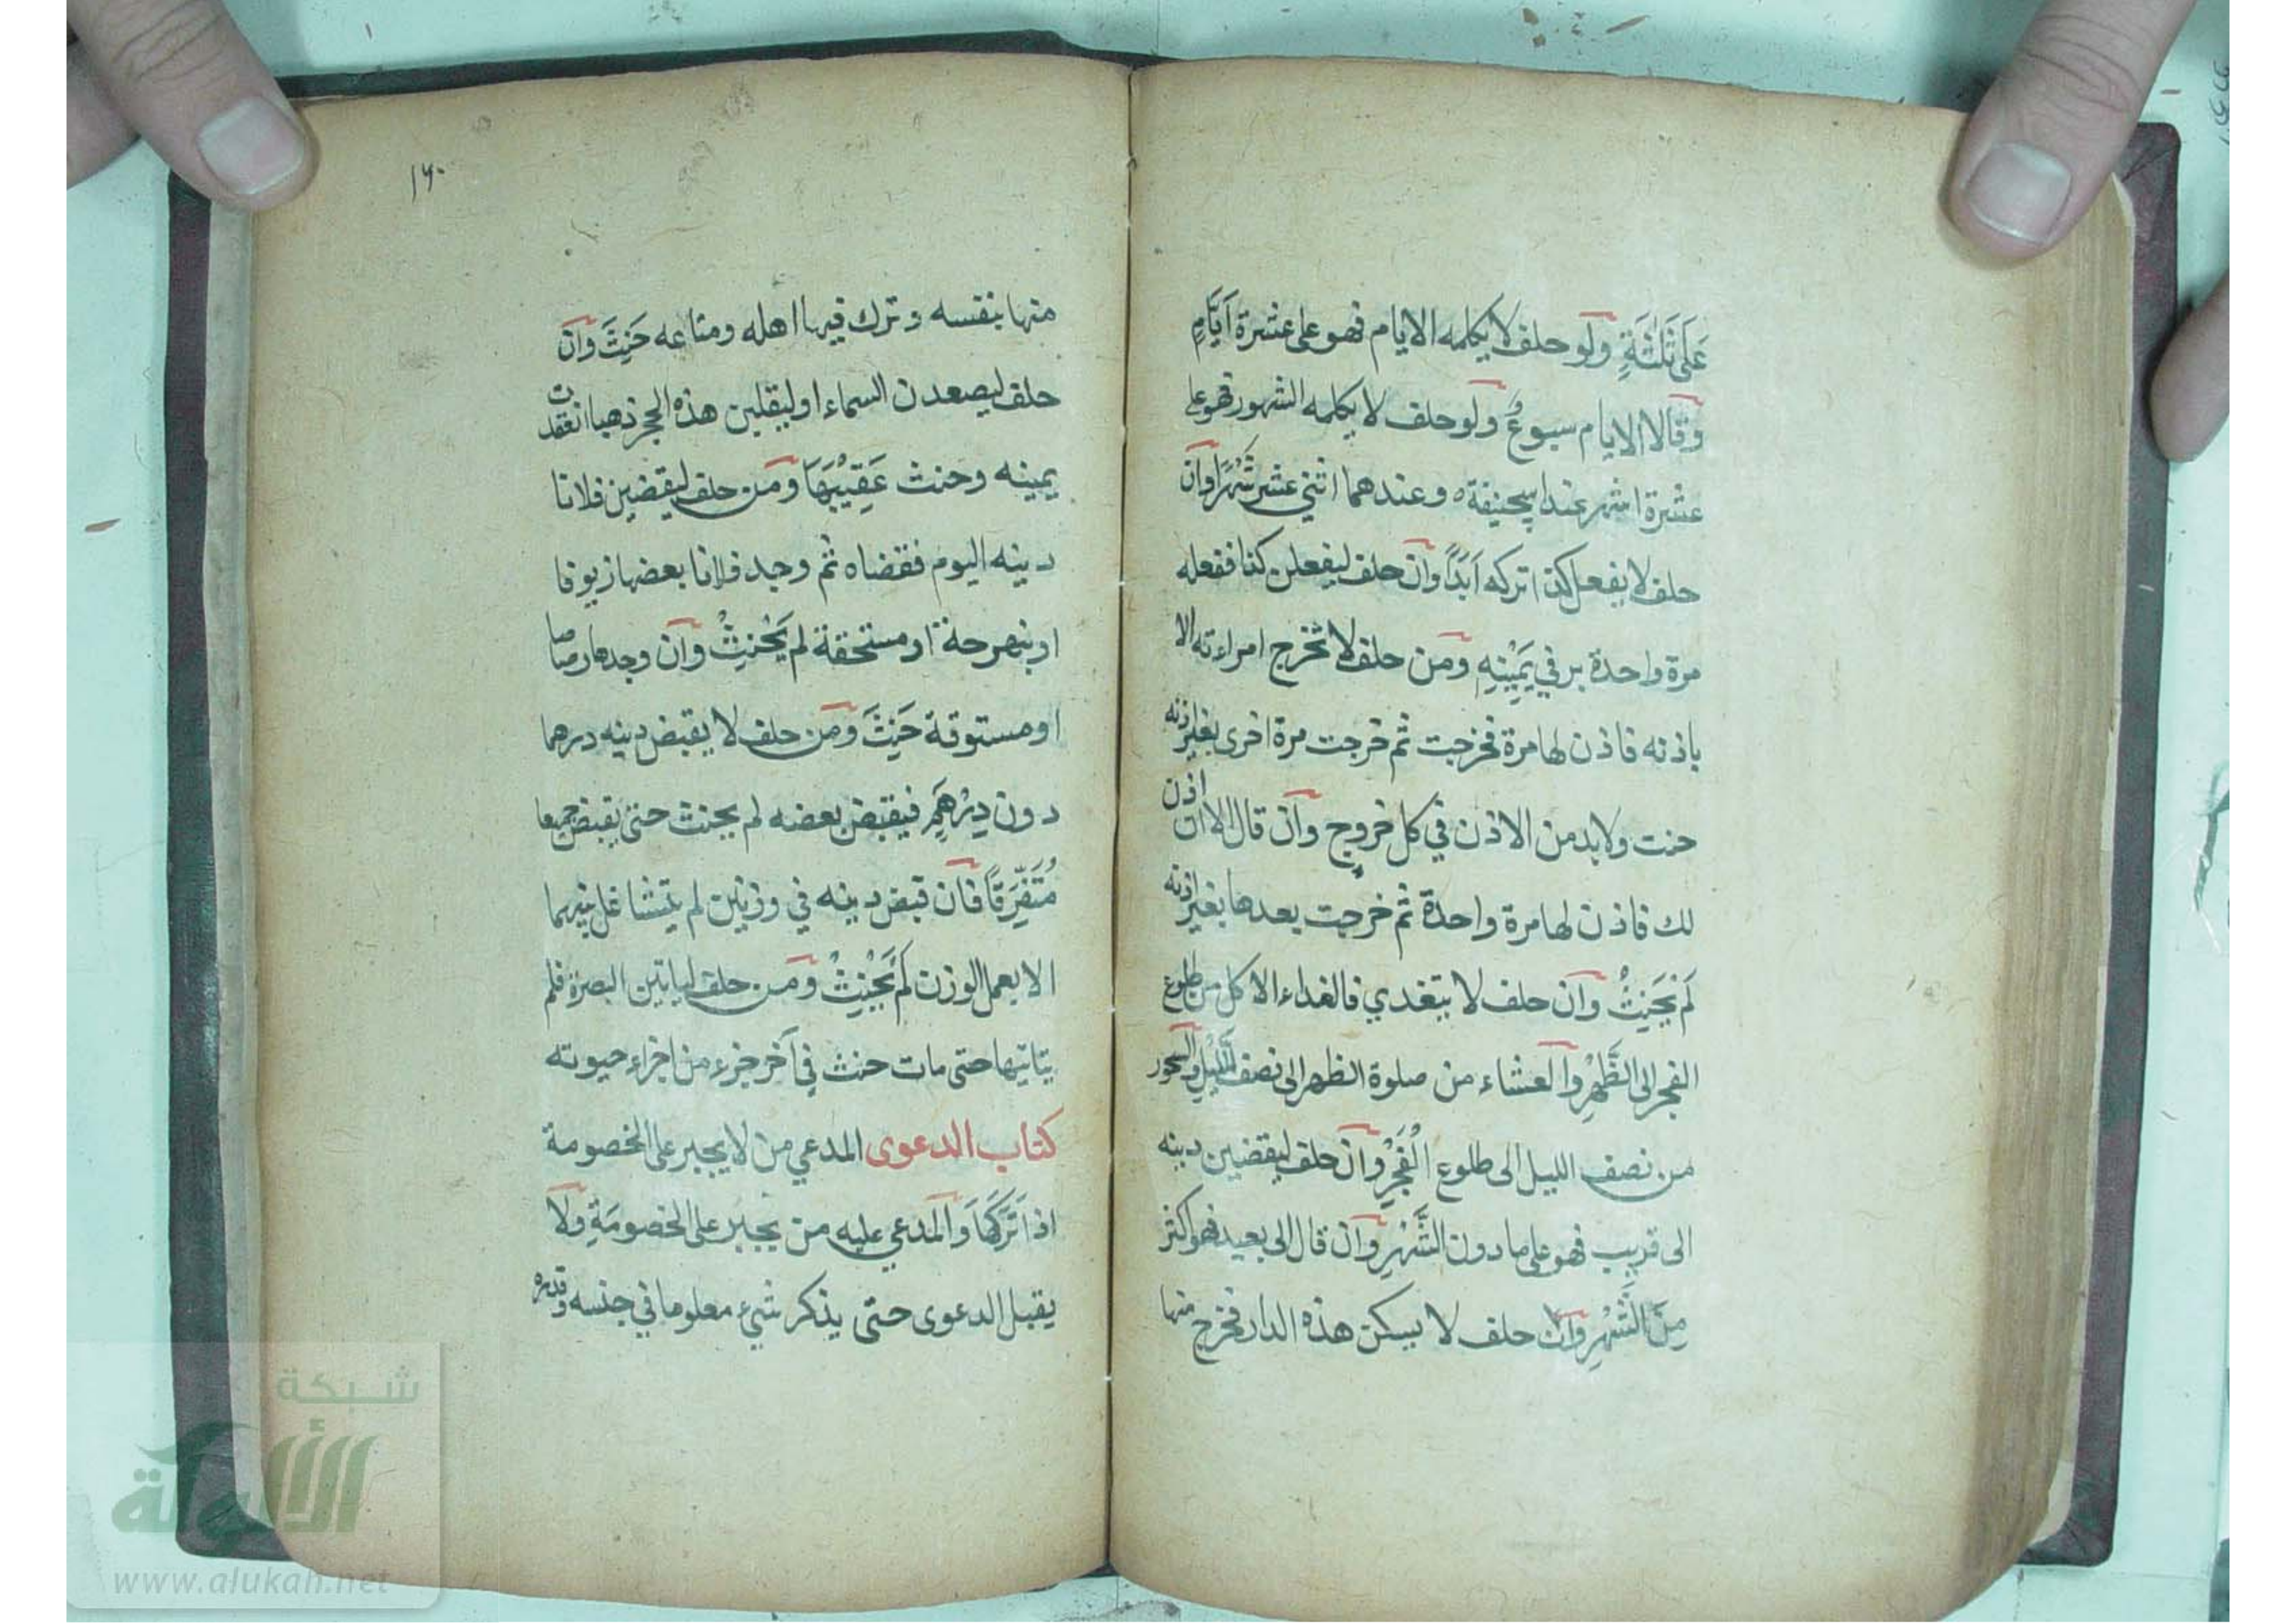 عَلَى ثَلٰثَةٍ ولو حلف لا يكلمه الايام فهو على عشرة اَيَّامٍ
وقالا الايام سبوعٌ ولو حلف لا يكلمه الشهور فهو على
عشرة اشهر عند ابيحنيفة ه وعندهما اثنى عشر شَهْرًا وان
حلف لا يفعل كذا تركه اَبَدًا وان حلف ليفعلن كذا ففعله
مرة واحدة بر في يَمِيْنِهِ ومن حلف لا تخرج امراءته الا
باذنه فاذن لها مرة فخرجت ثم خرجت مرة اخرى بغير اذنه
حنت ولابد من الاذن في كل خروجٍ وان قال الا ان اذن
لك فاذن لها مرة واحدة ثم خرجت بعدها بغير اذنه
لَمْ يَحْنِثْ وان حلف لا يتغدي فالغداء الاكل من طلوع
الفجر الى الظُّهْرِ والعشاء من صلوة الظهر الى نصف اللَّيْلِ والسحور
من نصف الليل الى طلوع الْفَجْرِ وان حلف ليقضين دينه
الى قريب فهو على ما دون الشَّهْرِ وان قال الى بعيد فهو اكثر
مِنَ الشَّهْرِ وان حلف لا يسكن هذه الدار فخرج منها
١٦٠
منها بنفسه وترك فيها اهله ومتاعه حَنِثَ وان
حلف ليصعدن السماء او ليقلبن هذه الحجر ذهبا انعقدت
يمينه وحنث عَقِيْبَهَا ومن حلف ليقضين فلانا
دينه اليوم فقضاه ثم وجد فلانا بعضها زيوفا
او بنهرحة او مستحقة لم يَحْنِثْ وان وجدها رصاصا
او مستوقة حَنِثَ ومن حلف لا يقبض دينه درهما
دون دِرْهَمٍ فيقبض بعضه لم يحنث حتى يقبض جميعا
مُتَفَرِّقًا فان قبض دينه في وزنين لم يتشاغل بينهما
الا بعمل الوزن لَمْ يَحْنِثْ ومن حلف لياتين البصرة فلم
يتاتيها حتى مات حنث في آخر جزء من اجزاء حيوته
كتاب الدعوى المدعي من لا يجبر على الخصومة
اذا تَرَكَهَا والمدعي عليه من يجبر على الخصومَةِ ولا
يقبل الدعوى حتى يذكر شيء معلوما في جنسه وقدره
شبكة
الألوكة
www.alukah.net